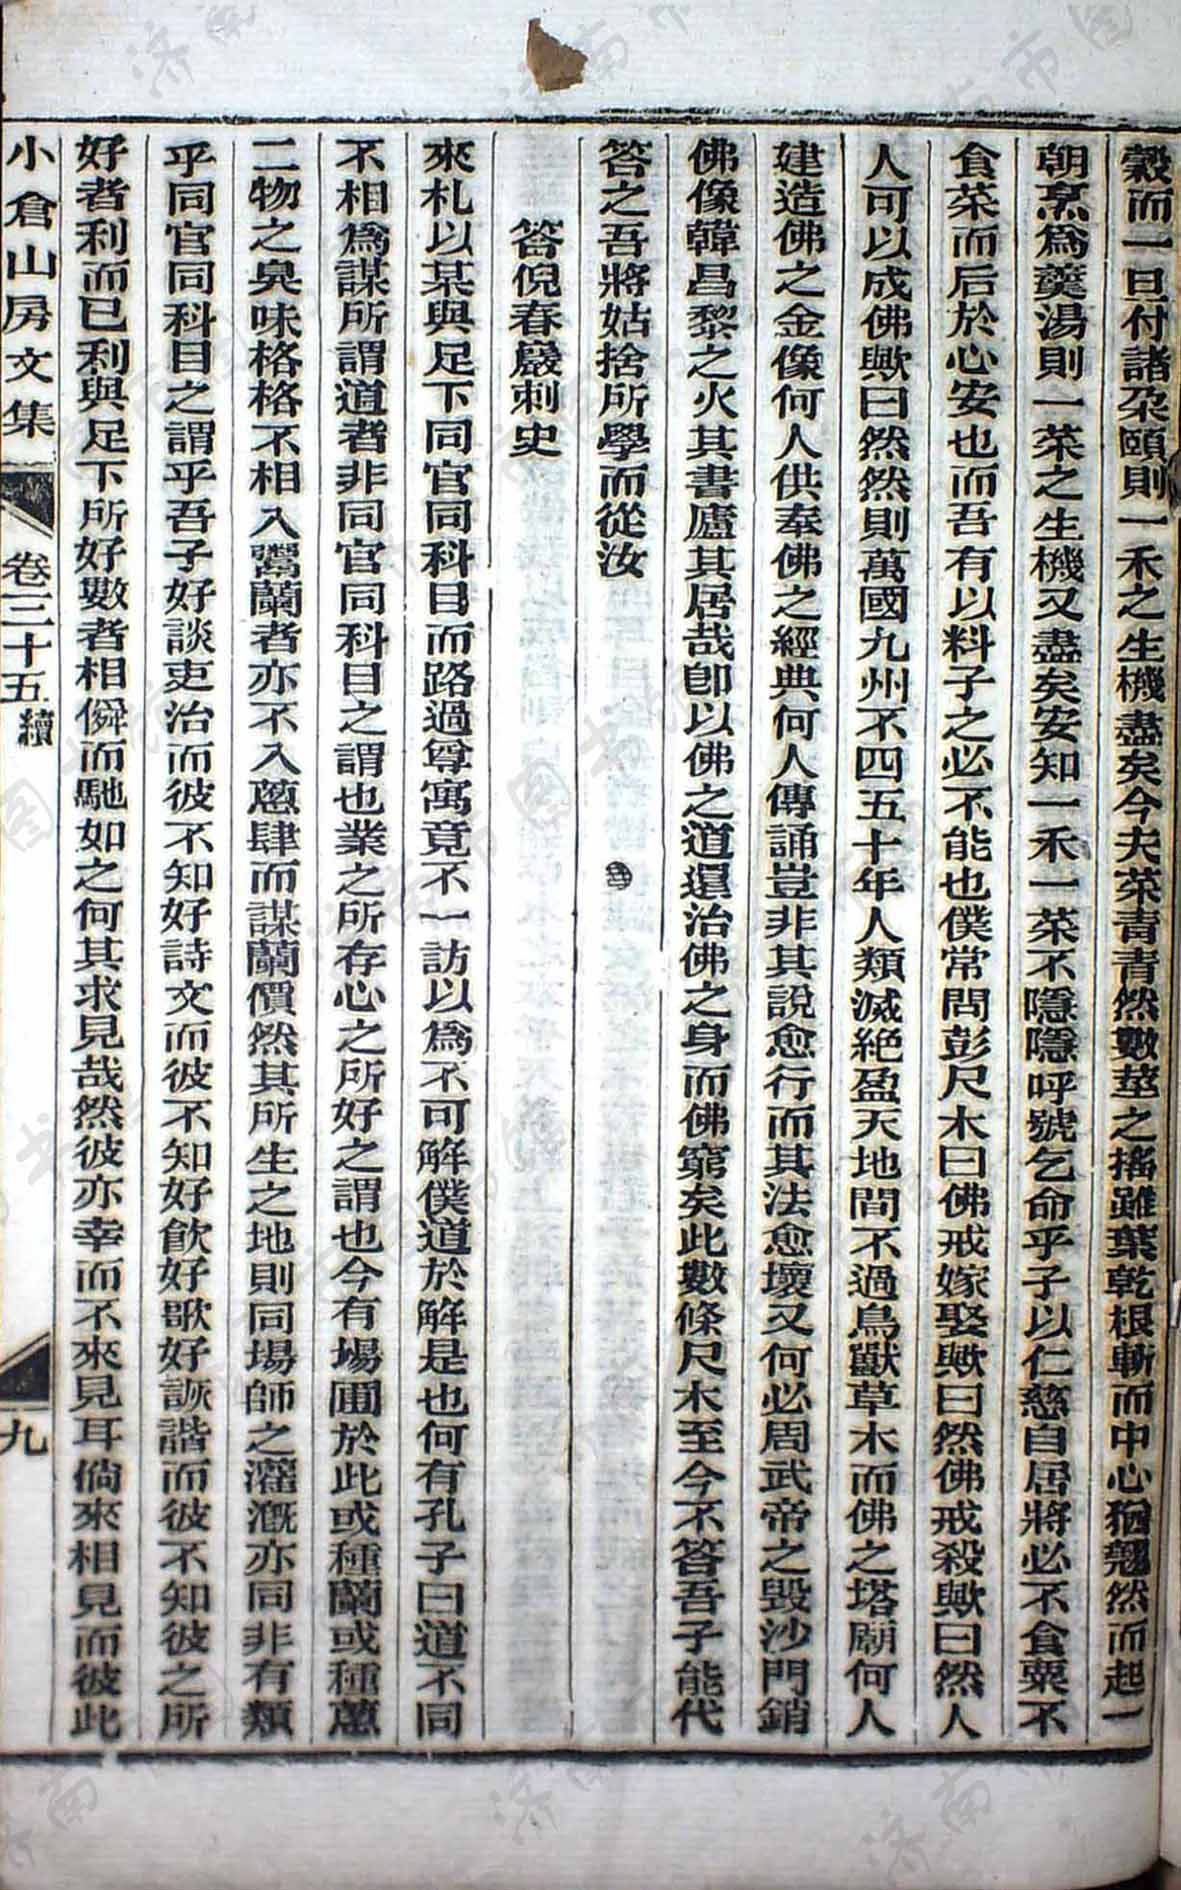 穀而一旦付諸朶頤則一禾之生機盡矣今夫菜青青然數莖之搖雖葉乾根斬而中心猶翹然而起一
朝烹爲羹湯則一菜之生機又盡矣安知一禾一菜不隱隱呼號乞命乎子以仁慈自居將必不食粟不
食菜而后於心安也而吾有以料子之必不能也僕常問彭尺木曰佛戒嫁娶歟曰然佛戒殺歟曰然人
人可以成佛歟曰然然則萬國九州不四五十年人類滅絶盈天地間不過鳥獸草木而佛之塔廟何人
建造佛之金像何人供奉佛之經典何人傳誦豈非其説愈行而其法愈壞又何必周武帝之毀沙門銷
佛像韓昌黎之火其書廬其居哉卽以佛之道還治佛之身而佛窮矣此數條尺木至今不答吾子能代
答之吾將姑捨所學而從汝
答倪春巖刺史
來札以某與足下同官同科目而路過尊寓竟不一訪以爲不可解僕道於解是也何有孔子曰道不同
不相爲謀所謂道者非同官同科目之謂也業之所存心之所好之謂也今有場圃於此或種蘭或種蔥
二物之臭味格格不相入鬻蘭者亦不入蔥肆而謀蘭價然其所生之地則同場師之灌漑亦同非有類
乎同官同科目之謂乎吾子好談吏治而彼不知好詩文而彼不知好飮好歌好詼諧而彼不知彼之所
好者利而已利與足下所好數者相僢而馳如之何其求見哉然彼亦幸而不來見耳倘來相見而彼此
小倉山房文集 卷三十五續 九